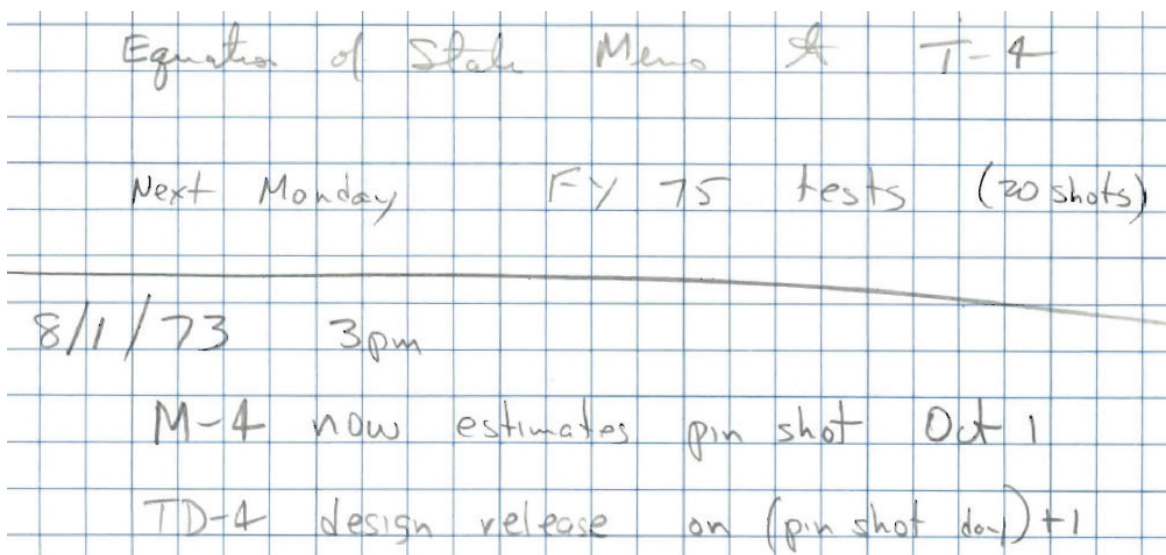 Equation of State Memo T-4
Next Monday FY 75 tests (20 shots)
8/1/73 3pm
M-4 now estimates pin shot Oct 1
TD-4 design release on (pin shot day)+1